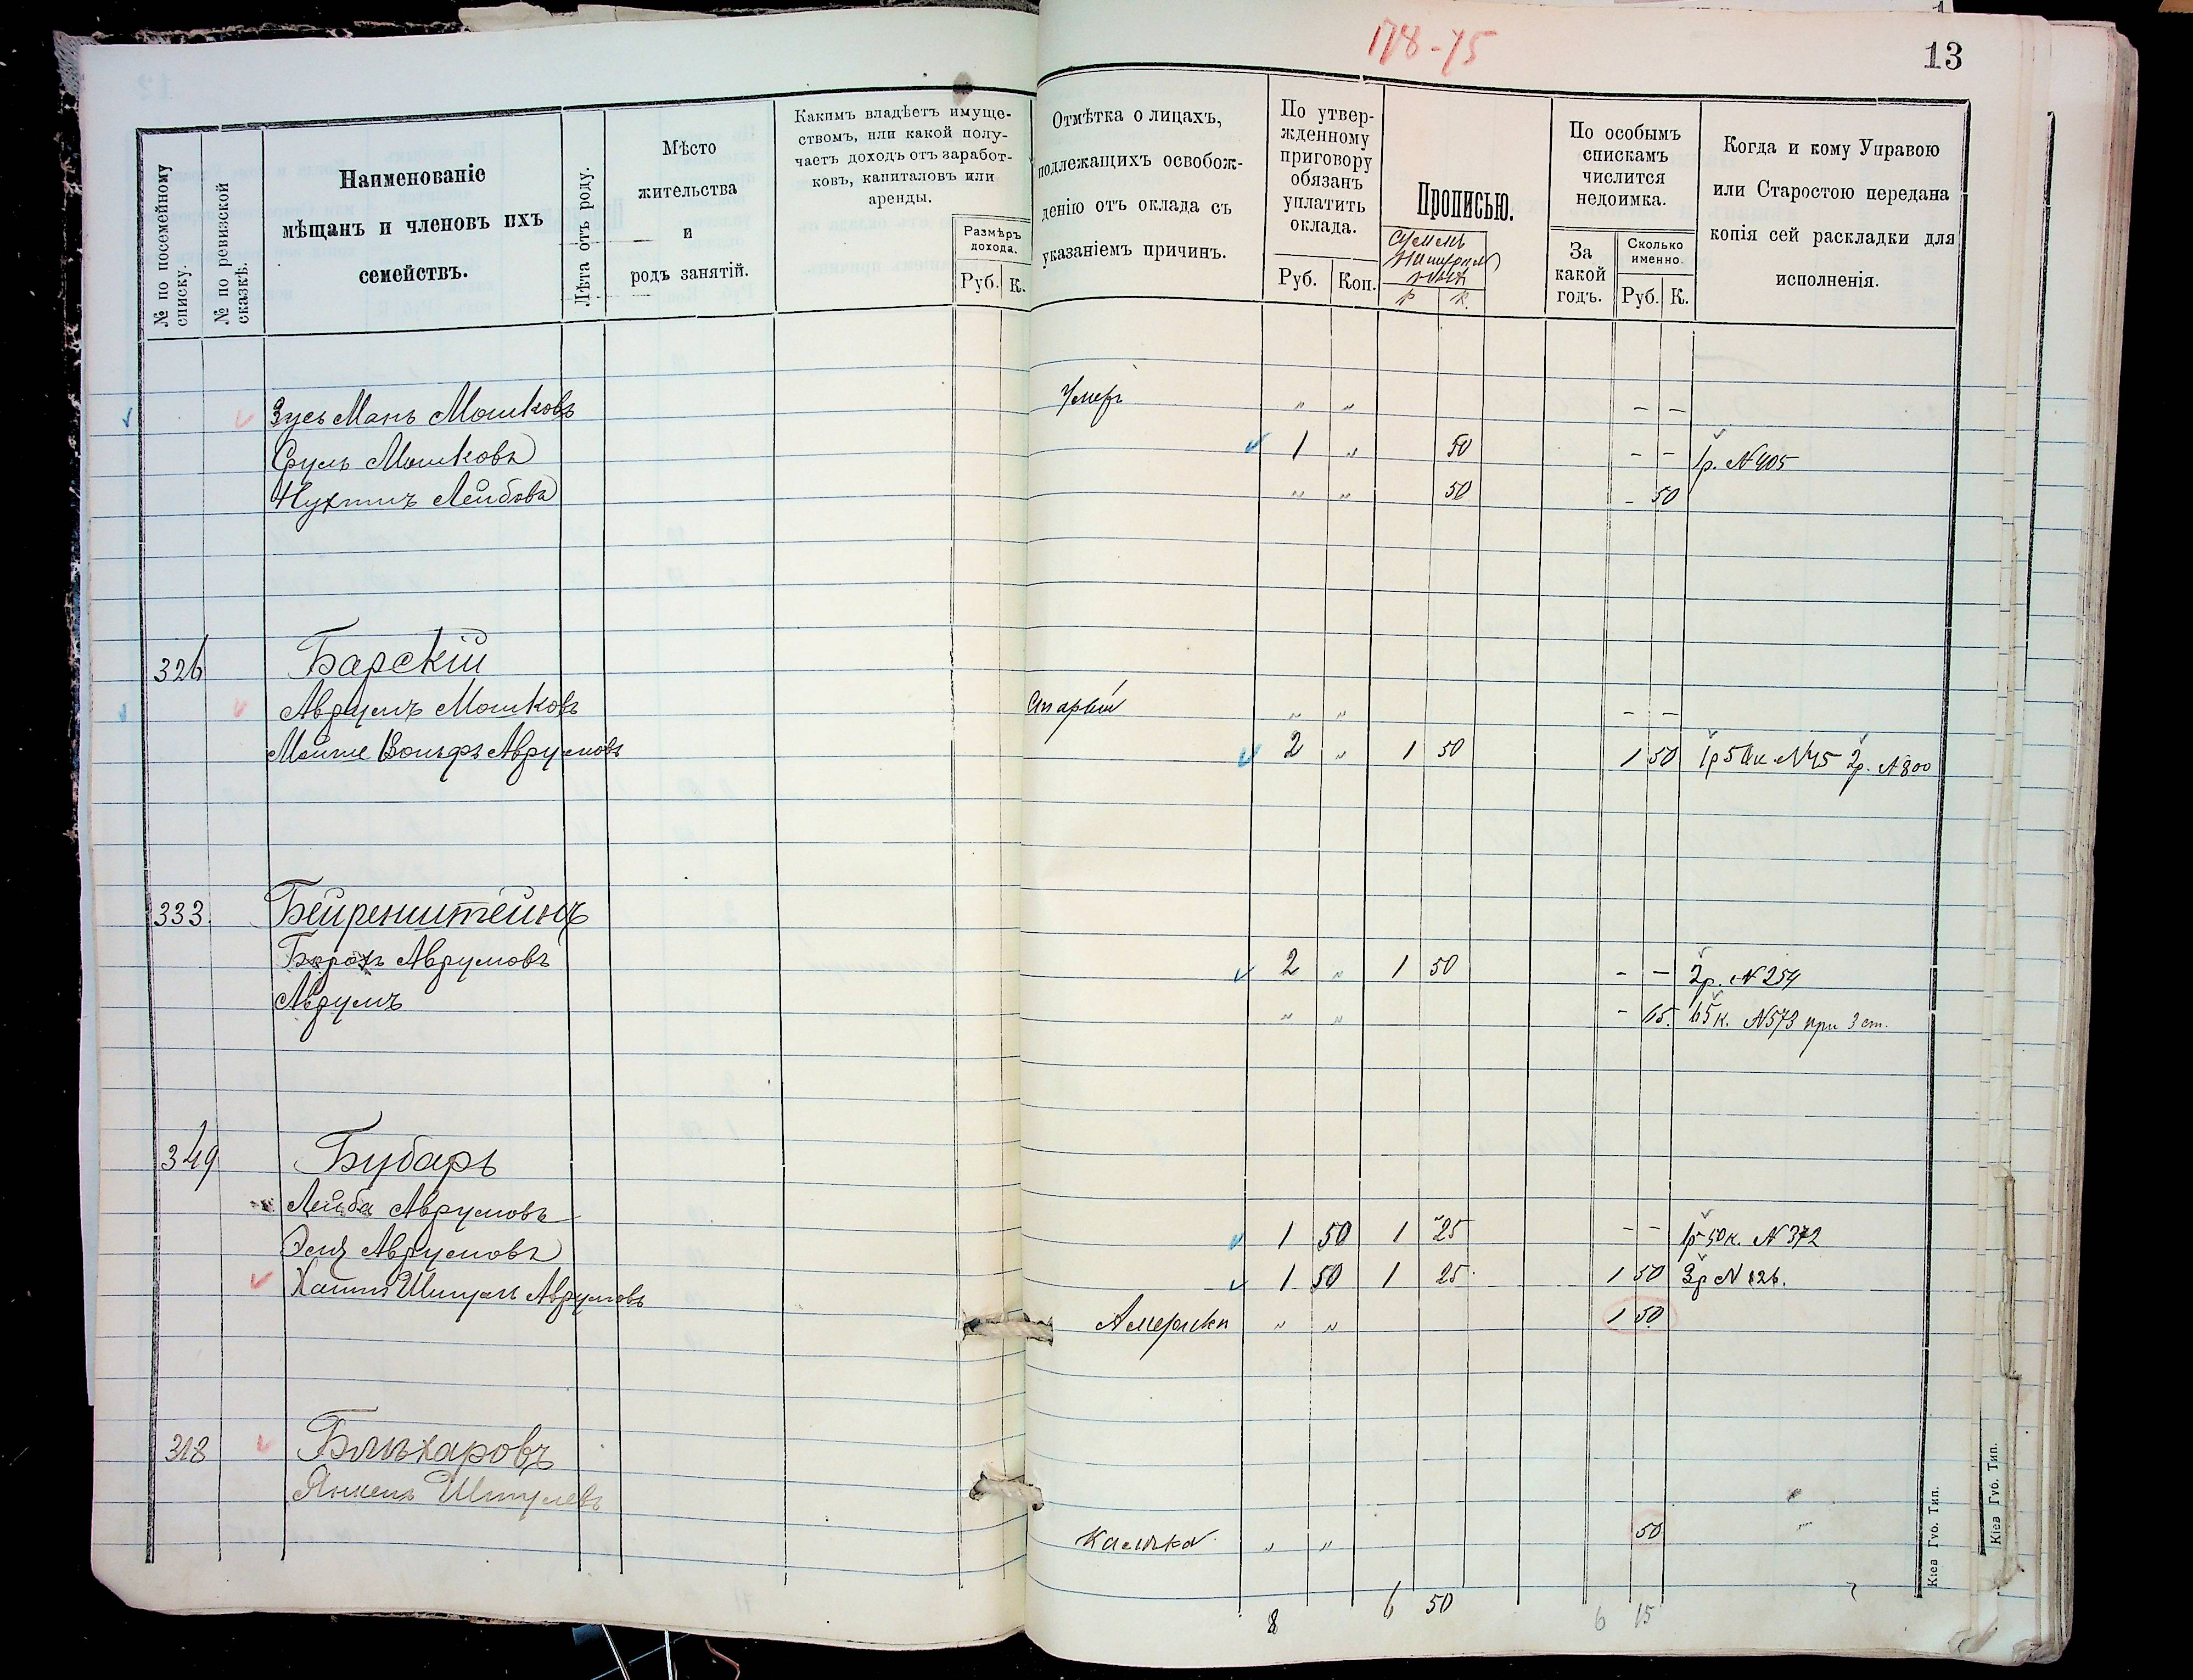 178-75
13
№ по посемейному списку.
№ по ревизской сказкѣ.
Наименованіе
мѣщанъ и членовъ ихъ
семействъ.
Лѣта отъ роду.
Мѣсто
жительства
и
родъ занятій.
Какимъ владѣетъ имуще-
ствомъ, или какой полу-
чаетъ доходъ отъ заработ-
ковъ, капиталовъ или
аренды.
Размѣръ
дохода.
Руб. К.
Отмѣтка о лицахъ,
подлежащихъ освобож-
денію отъ оклада съ
указаніемъ причинъ.
По утвер-
жденному
приговору
обязанъ
уплатить
оклада.
Руб. Коп.
Прописью.
Р К.
По особымъ
спискамъ
числится
недоимка.
За
какой
годъ.
Сколько
именно.
Руб. К.
Когда и кому Управою
или Старостою передана
копія сей раскладки для
исполненія.
Зусь Манъ Мошковъ Умеръ „ „ – –
Сруль Мошковъ 1 „ 50 – – 1р. N 405
Нухимъ Лейбовъ „ „ 50 – 50
326 Барскій
Аврумъ Мошковъ Старый „ „ – –
Мойше Вольфъ Аврумовъ 2 „ 1 50 1 50 1р 50к N 45 2р. N 800
333. Бейренштейнъ
Борохъ Аврумовъ 2 „ 1 50 – – 2р. N 254
Аврумъ „ „ – 65. 65к. N 573 при 3 ст.
349 Бубарь
Лейба Аврумовъ 1 50 1 25 – – 1р 50к. N 372
Эль Аврумовъ 1 50 1 25 1 50 3р N 126.
Хаимъ Шмуль Аврумовъ Америка „ „ 1 50
318 Бликхаровъ
Янкель Шмулевъ Калѣка „ „ 50
8 6 50 6 15
Кіев Губ. Тип.
Кіев Губ. Тип.